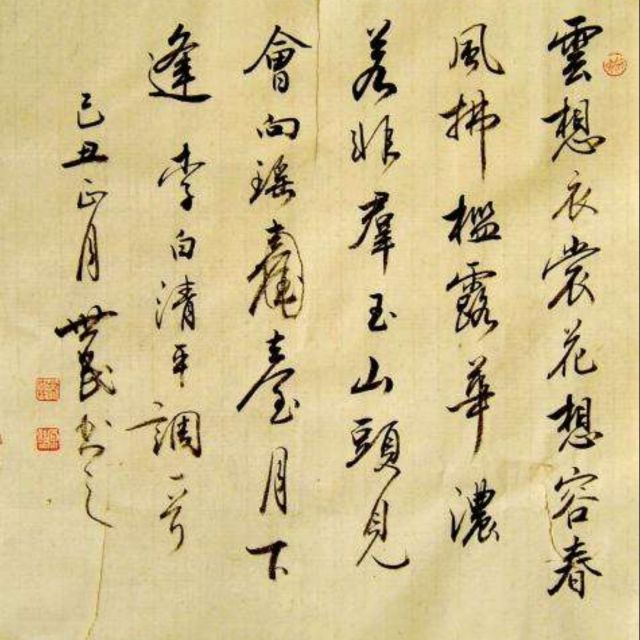 雲想衣裳花想容春
風拂檻露華濃
若非羣玉山頭見
會向瑶臺月下
逢 李白清平調一首
己丑正月世民书之